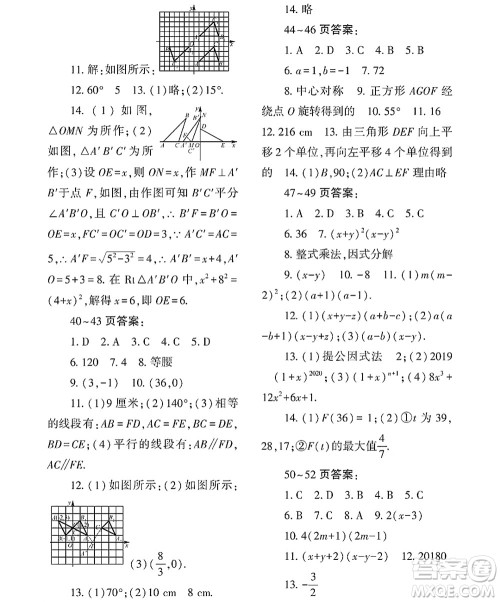 11. 解:如图所示:
12. 60° 5 13. (1)略;(2)15°.
14. (1) 如 图,
△OMN 为所作;(2)
如图,△A′B′C′为所
作;(3)设 OE=x,则 ON=x,作 MF⊥A′
B′于点 F,如图,由作图可知 B′C′平分
∠A′B′O,且 C′O⊥OB′,∴B′F=B′O=
OB=5,FC′=OC′=OD=3,∵A′C=AC=
5,∴A′F=√5²-3²=4,∴A′B′=x+4,A′
O=5+3=8.在 Rt△A′B′O 中,x²+8²=
(4+x)²,解得 x=6,即 OE=6.
40~43 页答案:
1. D 2. A 3. D 4. C 5. D
6. 120 7. 4 8. 等腰
9. (3,-1) 10. (36,0)
11. (1)9 厘米;(2)140°;(3)相等
的线段有:AB=FD,AC=FE,BC=DE,
BD=CE;(4)平行的线段有:AB∥FD,
AC∥FE.
12. (1)如图所示;(2)如图所示,
(3)(8/3,0).
13. (1)70°;(2)10 cm 8 cm.
14. 略
44~46 页答案:
1. A 2. D 3. B 4. A 5. B
6. a=1,b=-1 7. 72
8. 中心对称 9. 正方形 AGOF 经
绕点 O 旋转得到的 10. 55° 11. 16
12. 216 cm 13. 由三角形 DEF 向上平
移 2 个单位,再向左平移 4 个单位得到
的 14. (1)B,90;(2)AC⊥EF 理由略
47~49 页答案:
1. D 2. D 3. C 4. B 5. A
6. 36 7. (x+y)²(x-y)²
8. 整式乘法,因式分解
9. (x-y) 10. -8 11. (1)m(m-
2)²;(2)(a+1)(a-1).
12. (1)(x+y-z)(a+b-c);(2)a(a
-b+1)(x-y+z);(3)(a-1)(x-y).
13. (1)提公因式法 2;(2)2019
(1+x)²⁰²⁰;(3)(1+x)ⁿ⁺¹;(4)8x³+
12x²+6x+1.
14. (1)F(36)=1;(2)①t 为 39,
28,17;②F(t)的最大值4/7.
50~52 页答案:
1. C 2. D 3. A 4. B 5. C
6. D 7. B 8. A 9. 2(x-3)
10. 4(2m+1)(2m-1)
11. (x+y+2)(x-y-2) 12. 20180
13. -3/2